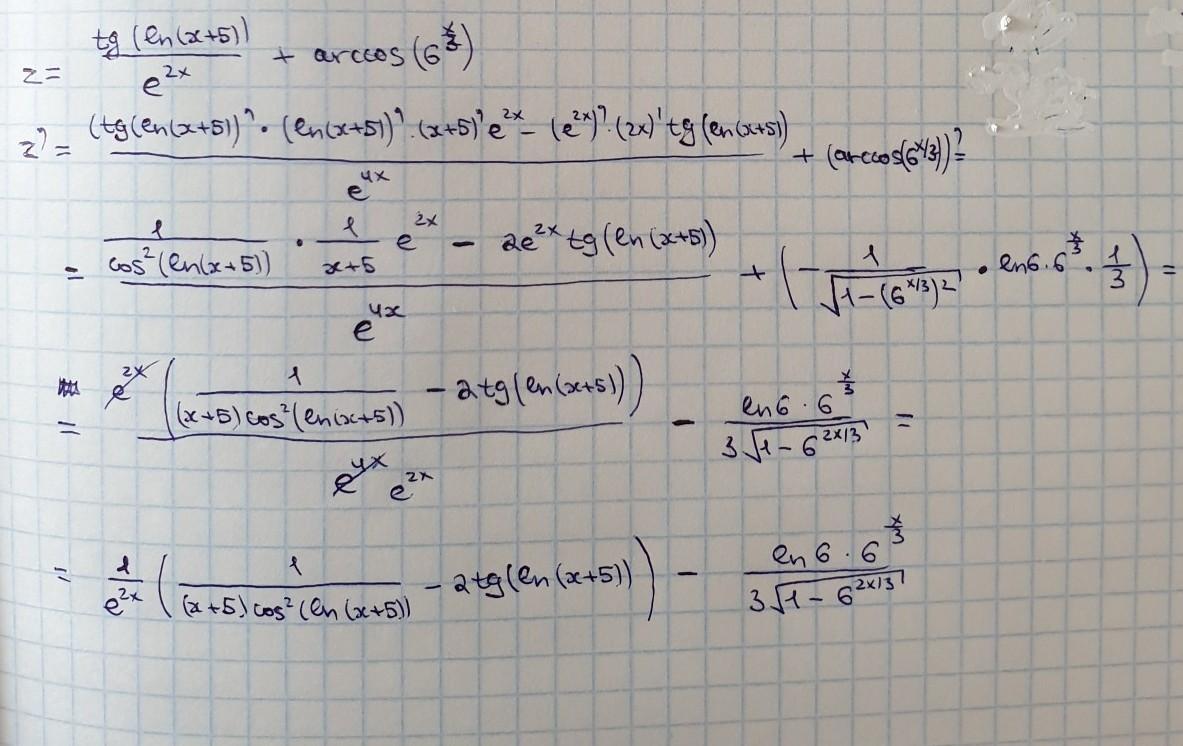 z = tg(ln(x+5))/e^{2x} + arccos(6^{x/3})
z' = ((tg(ln(x+5))'·(ln(x+5))'·(x+5)'e^{2x} − (e^{2x})'·(2x)'tg(ln(x+5)))/e^{4x} + (arccos(6^{x/3}))' =
= (1/cos²(ln(x+5)) · 1/(x+5) e^{2x} − 2e^{2x}tg(ln(x+5)))/e^{4x} + (−1/√(1−(6^{x/3})²) · ln6·6^{x/3}·1/3) =
= e^{2x}(1/((x+5)cos²(ln(x+5))) − 2tg(ln(x+5)))/(e^{4x} e^{2x}) − (ln6·6^{x/3})/(3√(1−6^{2x/3})) =
= 1/e^{2x}(1/((x+5)cos²(ln(x+5))) − 2tg(ln(x+5))) − (ln6·6^{x/3})/(3√(1−6^{2x/3}))